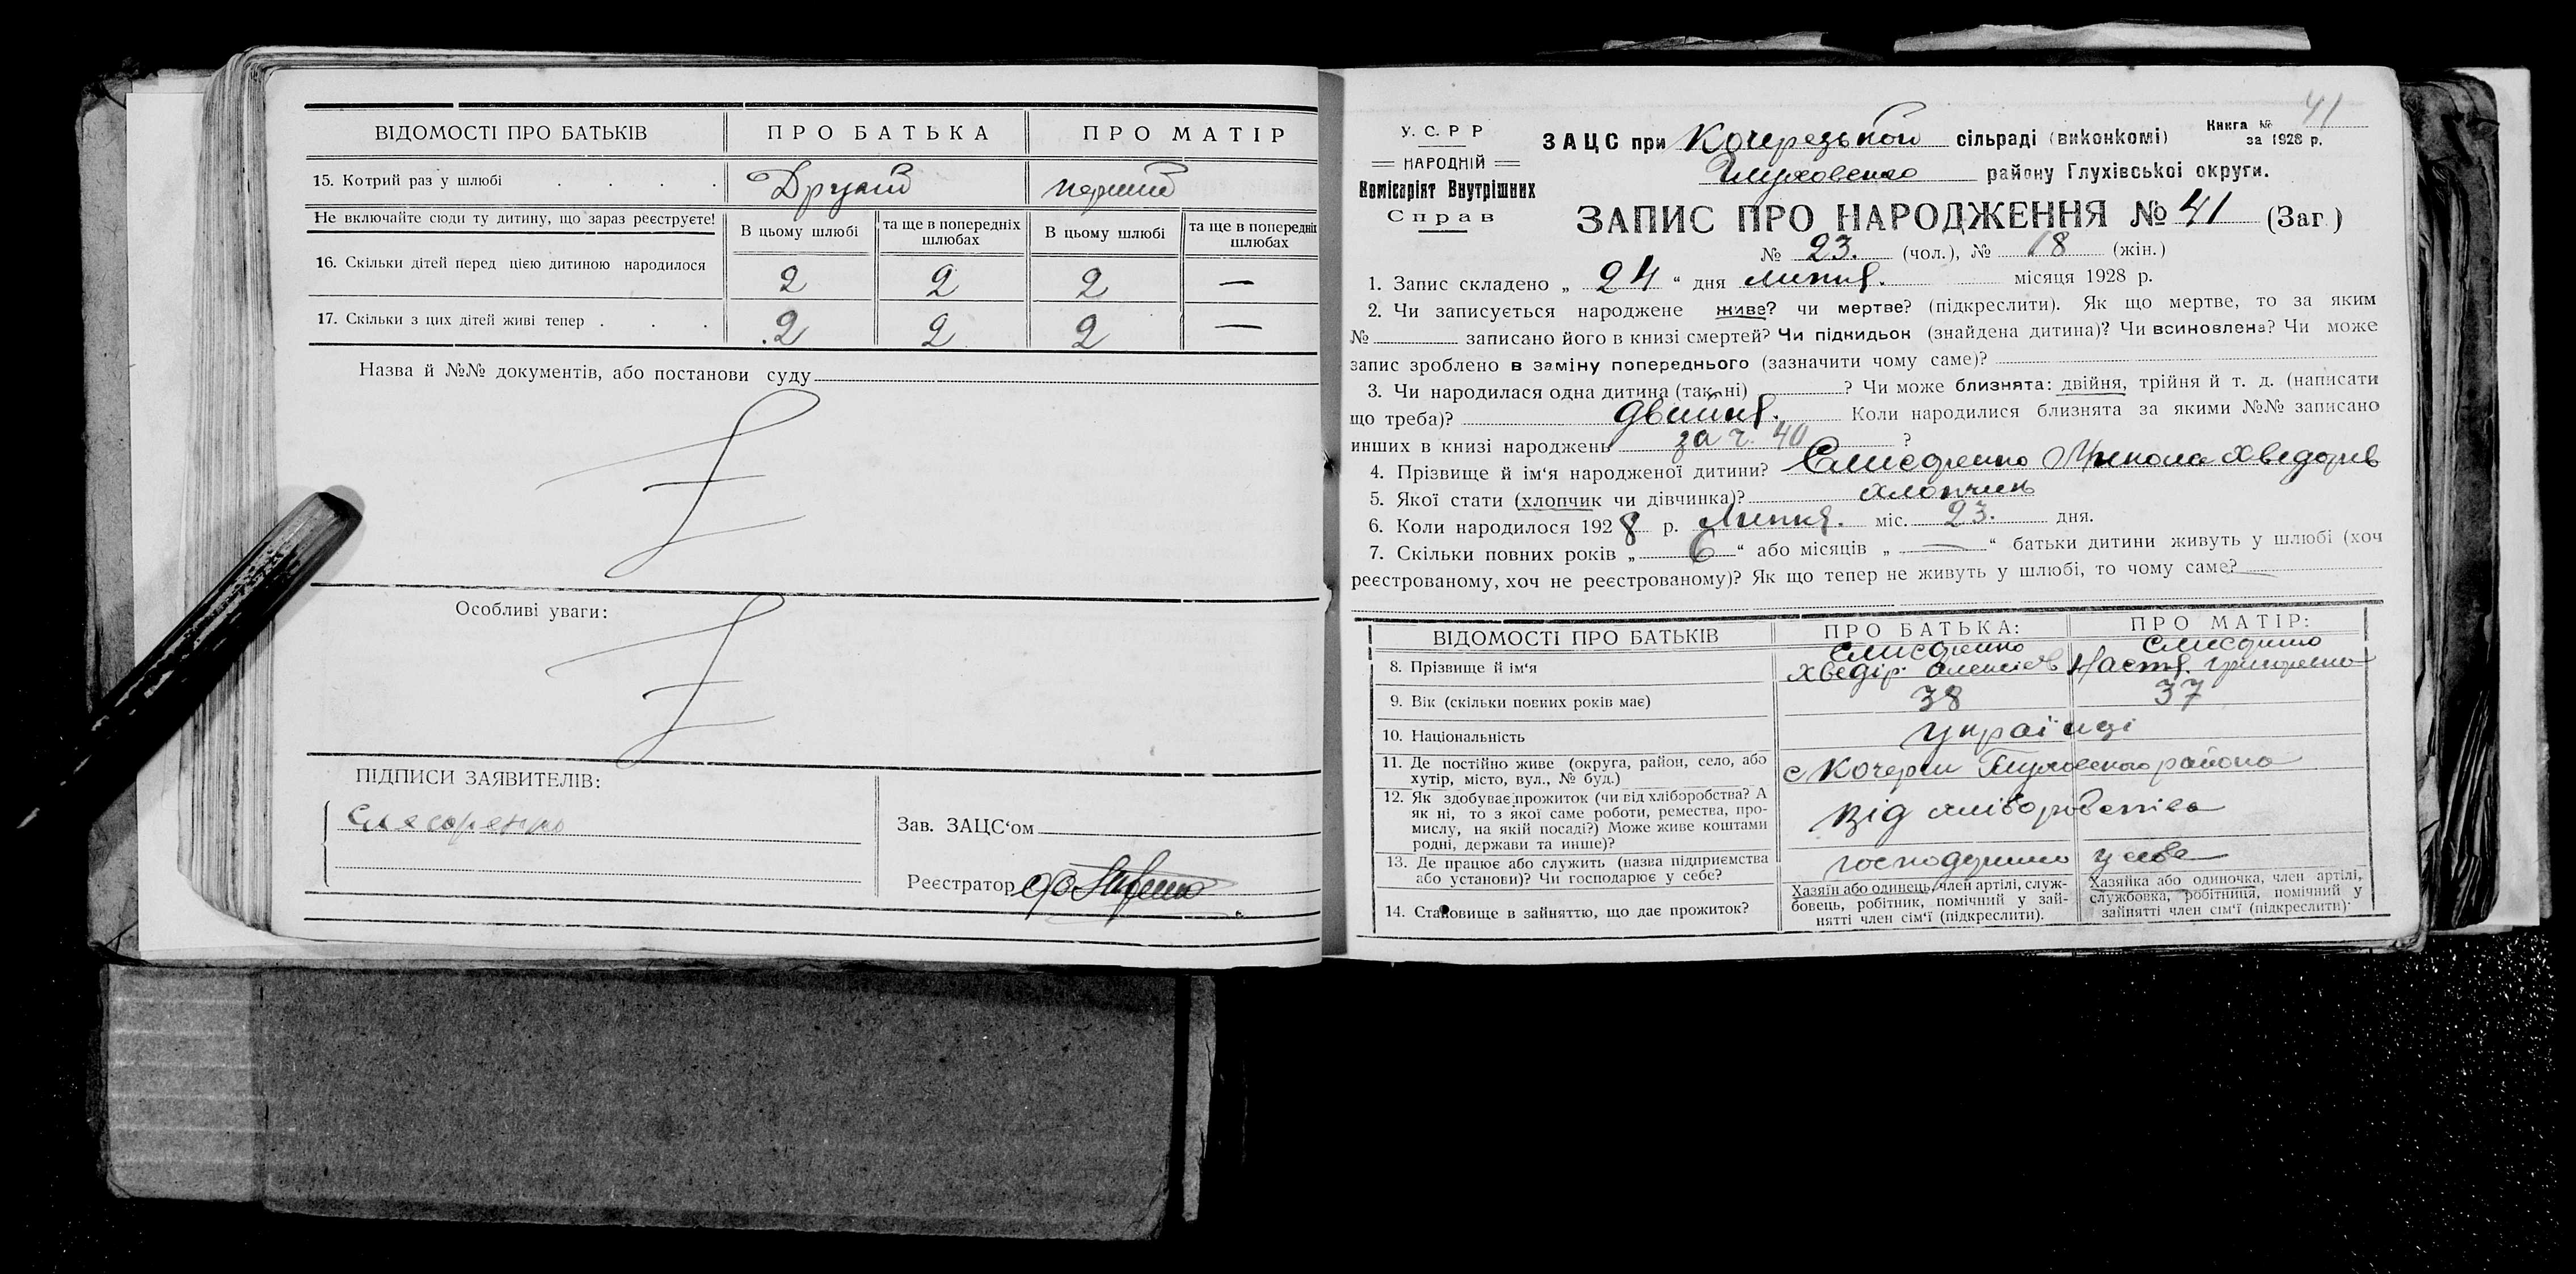 ВІДОМОСТІ ПРО БАТЬКІВ ПРО БАТЬКА ПРО МАТІР
15. Котрий раз у шлюбі . . . . Другий перший
Не включайте сюди ту дитину, що зараз реєструєте!
В цьому шлюбі та ще в попередніх шлюбах В цьому шлюбі та ще в попередніх шлюбах
16. Скільки дітей перед цією дитиною народилося 2 2 2 —
17. Скільки з цих дітей живі тепер . . . 2 2 2 —
Назва й №№ документів, або постанови суду
Особливі уваги:
ПІДПИСИ ЗАЯВИТЕЛІВ:
Зав. ЗАЦС‘ом
Реєстратор
41
У. С. Р Р
НАРОДНІЙ
Комісаріят Внутрішних
Справ
ЗАЦС при Кочерезькой сільраді (виконкомі)
Книга №
за 1928 р.
Глуховско району Глухівської округи.
ЗАПИС ПРО НАРОДЖЕННЯ № 41 (Заг.)
№ 23. (чол.), № 18 (жін.)
1. Запис складено „ 24 “ дня липня. місяця 1928 р.
2. Чи записується народжене живе? чи мертве? (підкреслити). Як що мертве, то за яким
№ записано його в книзі смертей? Чи підкидьок (знайдена дитина)? Чи всиновлена? Чи може
запис зроблено в заміну попереднього (зазначити чому саме)?
3. Чи народилася одна дитина (так, ні) ? Чи може близнята: двійня, трійня й т. д. (написати
що треба)? двийня. Коли народилися близнята за якими №№ записано
инших в книзі народжень за ч. 40 ?
4. Прізвище й ім‘я народженої дитини? Микола Хведорів
5. Якої стати (хлопчик чи дівчинка)? хлопчик
6. Коли народилося 1928 р. Липня. міс. 23. дня.
7. Скільки повних років „ 6 “ або місяців „ — “ батьки дитини живуть у шлюбі (хоч
реєстрованому, хоч не реєстрованому)? Як що тепер не живуть у шлюбі, то чому саме?
ВІДОМОСТІ ПРО БАТЬКІВ ПРО БАТЬКА: ПРО МАТІР:
8. Прізвище й ім‘я Хведір Олексієв Настя
9. Вік (скільки повних років має) 38 37
10. Національність українці
11. Де постійно живе (округа, район, село, або
хутір, місто, вул., № буд.) с Кочерги Глуховского района
12. Як здобуває прожиток (чи від хліборобства? А
як ні, то з якої саме роботи, ремества, про-
мислу, на якій посаді?) Може живе коштами
родні, держави та инше)? Від хліборобства
13. Де працює або служить (назва підприємства
або установи)? Чи господарює у себе? у себе
14. Становище в зайняттю, що дає прожиток?
Хазяїн або одинець, член артілі, служ-
бовець, робітник, помічний у зай-
нятті член сім‘ї (підкреслити).
Хазяйка або одиночка, член артілі,
службовка, робітниця, помічний у
зайнятті член сім‘ї (підкреслити).